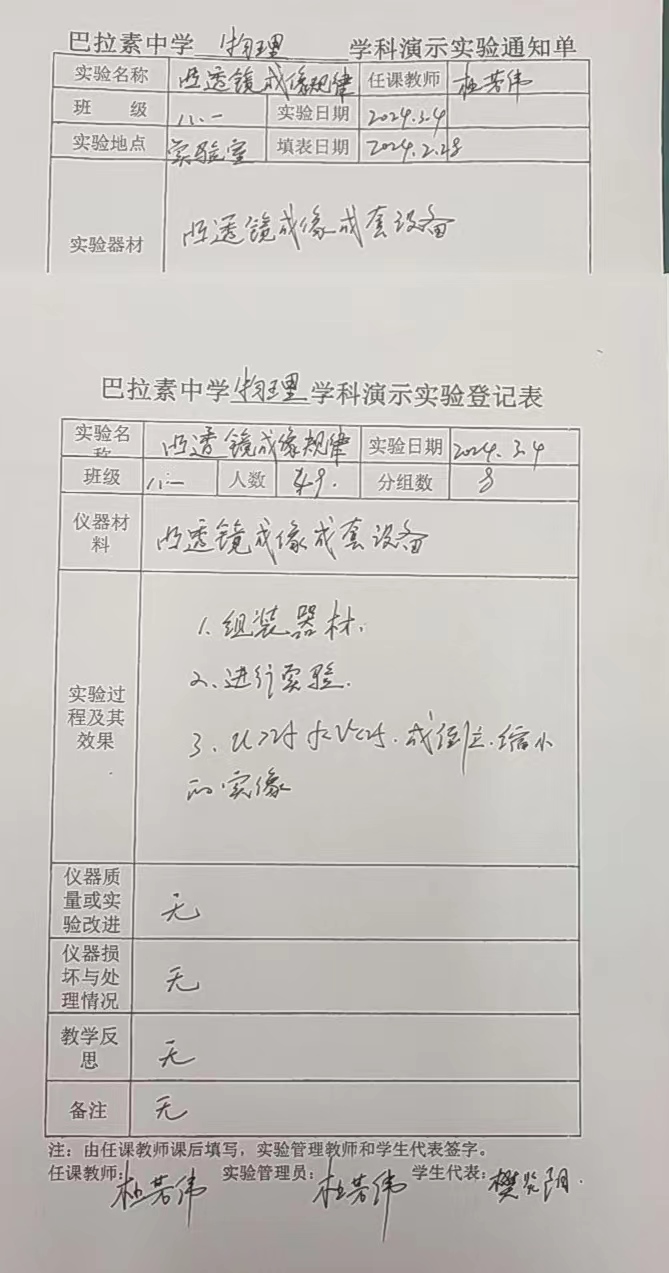 巴拉素中学 物理 学科演示实验通知单
实验名称 凸透镜成像规律 任课教师 杜若伟
班 级 八.一 实验日期 2024.3.4
实验地点 实验室 填表日期 2024.2.28
实验器材 凸透镜成像成套设备
巴拉素中学物理学科演示实验登记表
实验名称 凸透镜成像规律 实验日期 2024.3.4
班级 八.一 人数 49. 分组数 8
仪器材料 凸透镜成像成套设备
实验过程及其效果
1. 组装器材.
2. 进行实验.
3. u>2f f<v<2f. 成倒立.缩小
的实像
仪器质量或实验改进 无
仪器损坏与处理情况 无
教学反思 无
备注 无
注：由任课教师课后填写，实验管理教师和学生代表签字。
任课教师：杜若伟 实验管理员：杜若伟 学生代表：樊